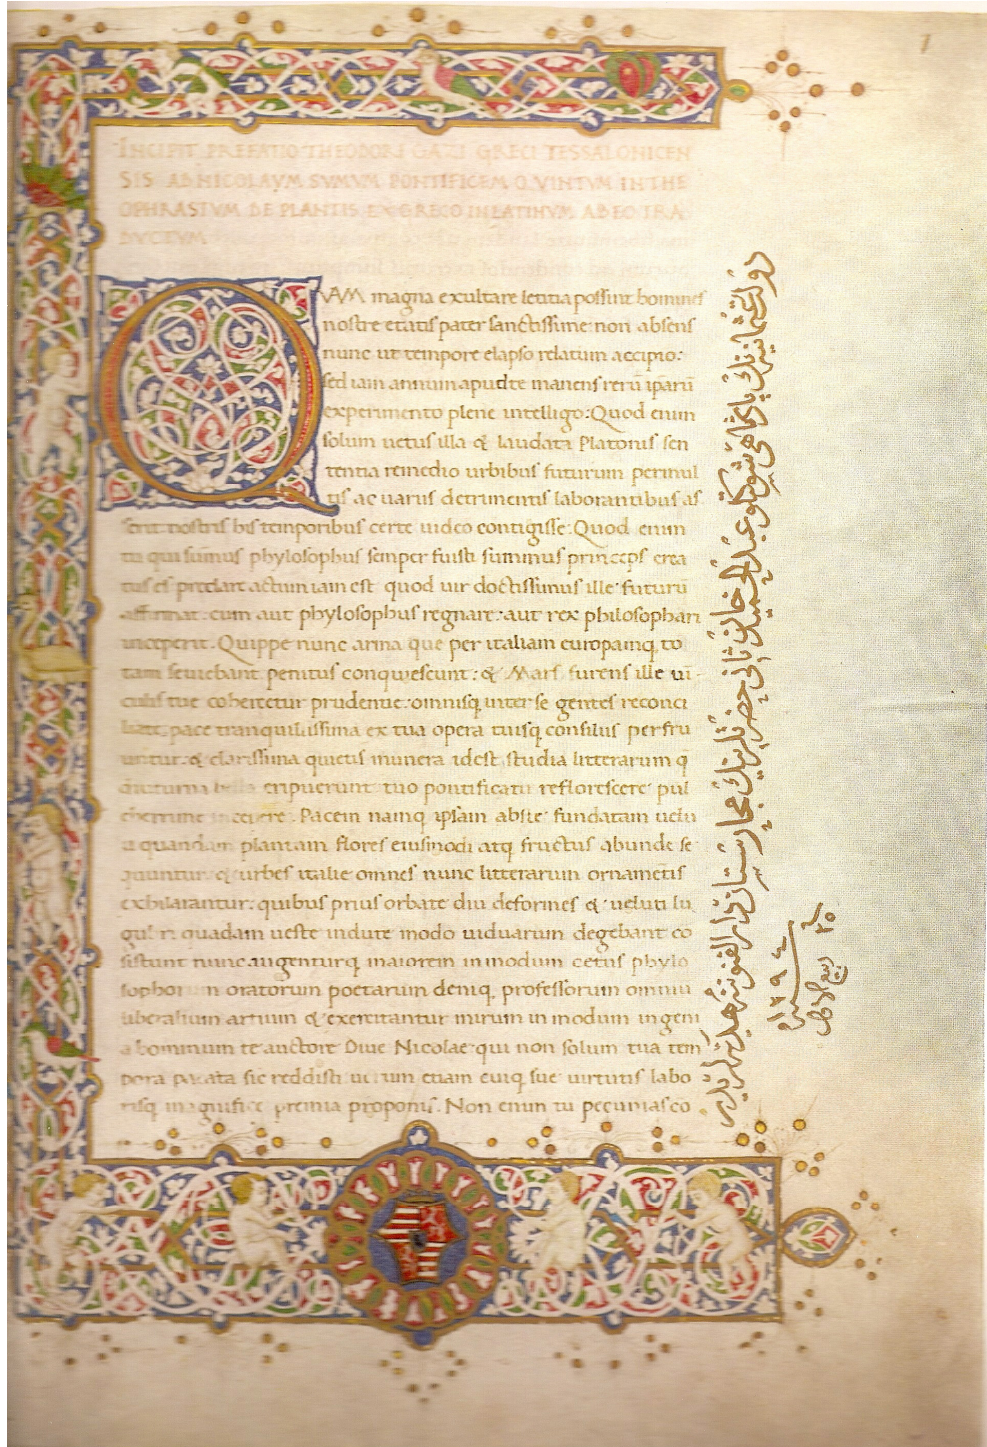 INCIPIT PREFATIO THEODORI GAZI GRECI TESSALONICEN
SIS AD NICOLAVM SVMVM PONTIFICEM QVINTVM IN THE
OPHRASTVM DE PLANTIS EX GRECO IN LATINVM AB EO TRA
DVCTVM
QVAM magna exultare letitia possunt homines
nostre etatis pater sanctissime non absens
nunc ut tempore elapso relatum accipio:
sed iam annum apud te manens rerū ipsarū
experimento plene intelligo: Quod enim
solum uetus illa & laudata Platonis sen
tentia remedio urbibus futurum permul
tis ac uariis detrimentis laborantibus as
serit nostris his temporibus certe uideo contigisse. Quod enim
tu qui summus phylosophus semper fuisti summus princeps crea
tus es preclare actum iam est quod uir doctissimus ille futurū
affirmat: cum aut phylosophus regnare: aut rex philosophari
inceperit. Quippe nunc arma que per italiam europamq; to
tam seuiebant penitus conquiescunt: & Mars furens ille ui
culis tue cohercetur prudentie: omnisq; inter se gentes reconci
liate pace tranquilissima ex tua opera tuisq; consiliis perfru
untur: & clarissima quietis munera idest studia litterarum q̄
diuturna bella eripuerunt tuo pontificatu reflorescere pul
cherrime incepere. Pacem namq; ipsam abste fundatam uelu
ti quandam plantam flores eiusmodi atq; fructus abunde se
quuntur: & urbes italie omnes nunc litterarum ornametis
exhilarantur: quibus prius orbate diu deformes & ueluti lu
gubri quadam ueste indute modo uiduarum degebant co
sistunt nunc augenturq; maiorem inmodum cetus phylo
sophorum oratorum poetarum deniq; professorum omniu
liberalium artium & exercitantur mirum inmodum ingeni
a hominum te auctore Diue Nicolae qui non solum tua tem
pora pacata sic reddisti uerum etiam cuiq; sue uirtutis labo
risq; magnifice premia proponis. Non enim tu pecunias co
دولت عثمانیه نك پادشاهی شوكتلو عبد الحمید خان ثانی حضرتلرینك مجارستان دار الفنوننه هدیه لریدر
سنه ١٢٩٤
ربيع الاول